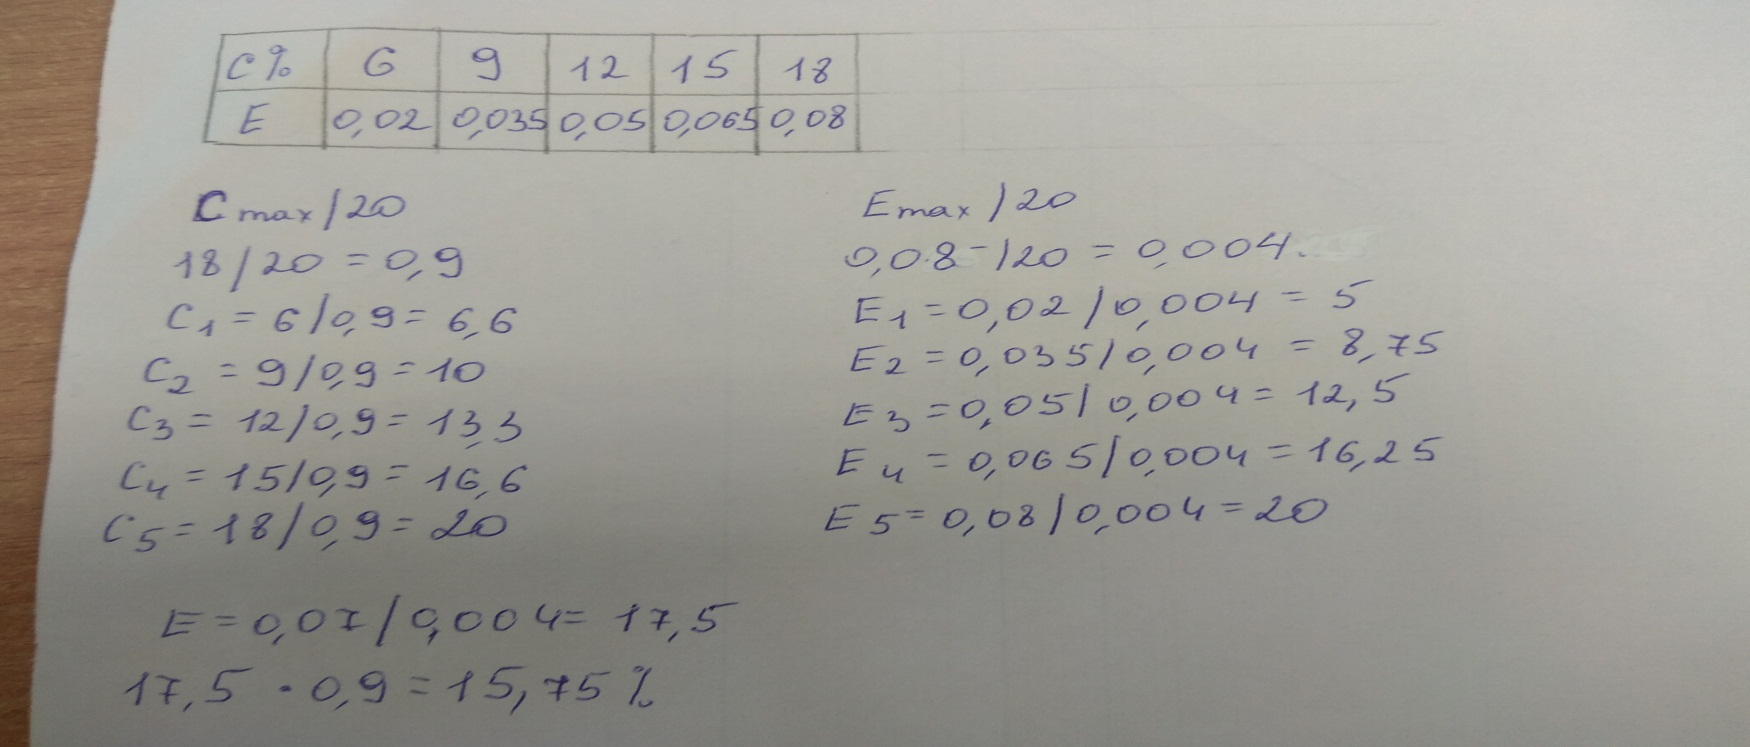 C% 6 9 12 15 18
E 0,02 0,035 0,05 0,065 0,08
Cmax/20
18/20 = 0,9
C1 = 6/0,9 = 6,6
C2 = 9/0,9 = 10
C3 = 12/0,9 = 13,3
C4 = 15/0,9 = 16,6
C5 = 18/0,9 = 20
Emax/20
0,08/20 = 0,004
E1 = 0,02/0,004 = 5
E2 = 0,035/0,004 = 8,75
E3 = 0,05/0,004 = 12,5
E4 = 0,065/0,004 = 16,25
E5 = 0,08/0,004 = 20
E = 0,07/0,004 = 17,5
17,5 · 0,9 = 15,75 %